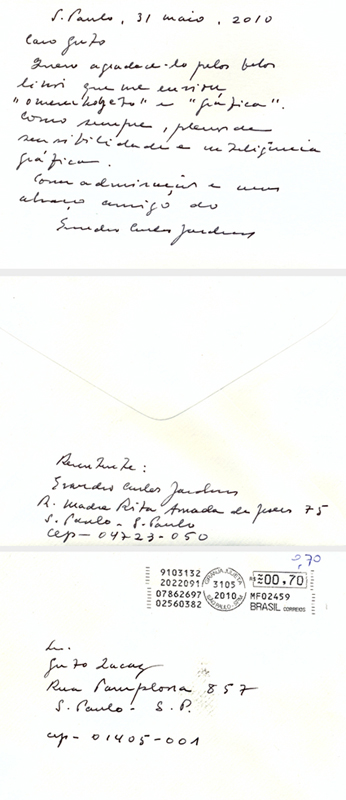 S. Paulo, 31 maio, 2010
Caro Guto
Quero agradecê-lo pelos belos
livros que me enviou
"omemhobjeto" e "gráfica".
Como sempre, plenos de
sensibilidade e inteligência
gráfica.
Com admiração e um
abraço amigo do
Evandro Carlos Jardim
Remetente:
Evandro Carlos Jardim
R. Madre Rita Amada de Jesus 75
S. Paulo - S. Paulo
cep - 04723-050
0,70
9103132
2022091
07862697
02560382
GRANJA JULIETA
3105
2010
SÃO PAULO - SPM
R$ 00,70
MF02459
BRASIL CORREIOS
Guto Lacaz
Rua Pamplona 857
S. Paulo - S.P.
cep - 01405-001